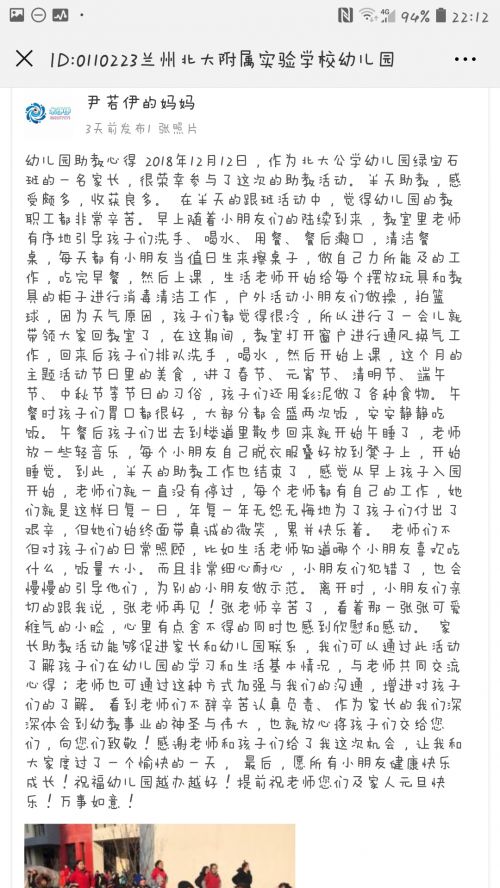 4G 94% 22:12
ID:0110223兰州北大附属实验学校幼儿园
尹若伊的妈妈
3天前发布1 张照片
幼儿园助教心得 2018年12月12日，作为北大公学幼儿园绿宝石
班的一名家长，很荣幸参与了这次的助教活动。半天助教，感
受颇多，收获良多。 在半天的跟班活动中，觉得幼儿园的教
职工都非常辛苦。早上随着小朋友们的陆续到来，教室里老师
有序地引导孩子们洗手、喝水、用餐、餐后漱口，清洁餐
桌，每天都有小朋友当值日生来擦桌子，做自己力所能及的工
作，吃完早餐，然后上课，生活老师开始给每个摆放玩具和教
具的柜子进行消毒清洁工作，户外活动小朋友们做操，拍篮
球，因为天气原因，孩子们都觉得很冷，所以进行了一会儿就
带领大家回教室了，在这期间，教室打开窗户进行通风换气工
作，回来后孩子们排队洗手，喝水，然后开始上课，这个月的
主题活动节日里的美食，讲了春节、元宵节、清明节、端午
节、中秋节等节日的习俗，孩子们还用彩泥做了各种食物。午
餐时孩子们胃口都很好，大部分都会盛两次饭，安安静静吃
饭。午餐后孩子们出去到楼道里散步回来就开始午睡了，老师
放一些轻音乐，每个小朋友自己脱衣服叠好放到凳子上，开始
睡觉。到此，半天的助教工作也结束了，感觉从早上孩子入园
开始，老师们就一直没有停过，每个老师都有自己的工作，她
们就是这样日复一日，年复一年无怨无悔地为了孩子们付出了
艰辛，但她们始终面带真诚的微笑，累并快乐着。 老师们不
但对孩子们的日常照顾，比如生活老师知道哪个小朋友喜欢吃
什么，饭量大小。而且非常细心耐心，小朋友们犯错了，也会
慢慢的引导他们，为别的小朋友做示范。离开时，小朋友们亲
切的跟我说，张老师再见！张老师辛苦了，看着那一张张可爱
稚气的小脸，心里有点舍不得的同时也感到欣慰和感动。 家
长助教活动能够促进家长和幼儿园联系，我们可以通过此活动
了解孩子们在幼儿园的学习和生活基本情况，与老师共同交流
心得；老师也可通过这种方式加强与我们的沟通，增进对孩子
们的了解。看到老师们不辞辛苦认真负责、作为家长的我们深
深体会到幼教事业的神圣与伟大，也就放心将孩子们交给您
们，向您们致敬！感谢老师和孩子们给了我这次机会，让我和
大家度过了一个愉快的一天， 最后，愿所有小朋友健康快乐
成长！祝福幼儿园越办越好！提前祝老师您们及家人元旦快
乐！万事如意！